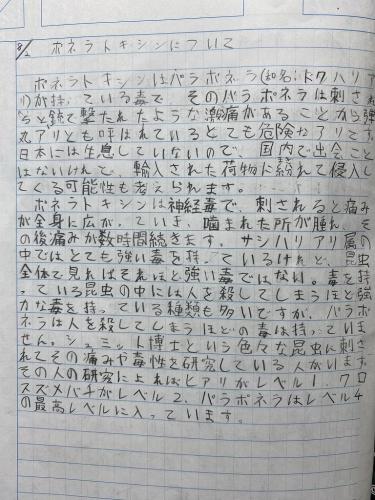 8/2 ポネラトキシンについて
ポネラトキシンはパラポネラ(和名:ドクハリア
リ)が持っている毒で、そのパラポネラは刺され
ると銃で撃たれたような激痛があることから弾
丸アリとも呼ばれているとても危険なアリです
日本には生息していないので、国内で出会うこと
はないけれど、輸入された荷物に紛れて侵入し
てくる可能性も考えられます。
ポネラトキシンは神経毒で、刺されると痛み
が全身に広がっていき、噛まれた所が腫れ、そ
の後痛みが数時間続きます。サシハリアリ属の
中ではとても強い毒を持っているけれど、昆虫
全体で見ればそれほど強い毒ではない。毒を持
っている昆虫の中には人を殺してしまうほど強
力な毒を持っている種類も多いですが、パラポ
ネラは人を殺してしまうほどの毒は持っていま
せん。シュミット博士という色々な昆虫に刺さ
れてその痛みや毒性を研究している人がいます
その人の研究によればヒアリがレベル1、クロ
スズメバチがレベル2、パラポネラはレベル4
の最高レベルに入っています。